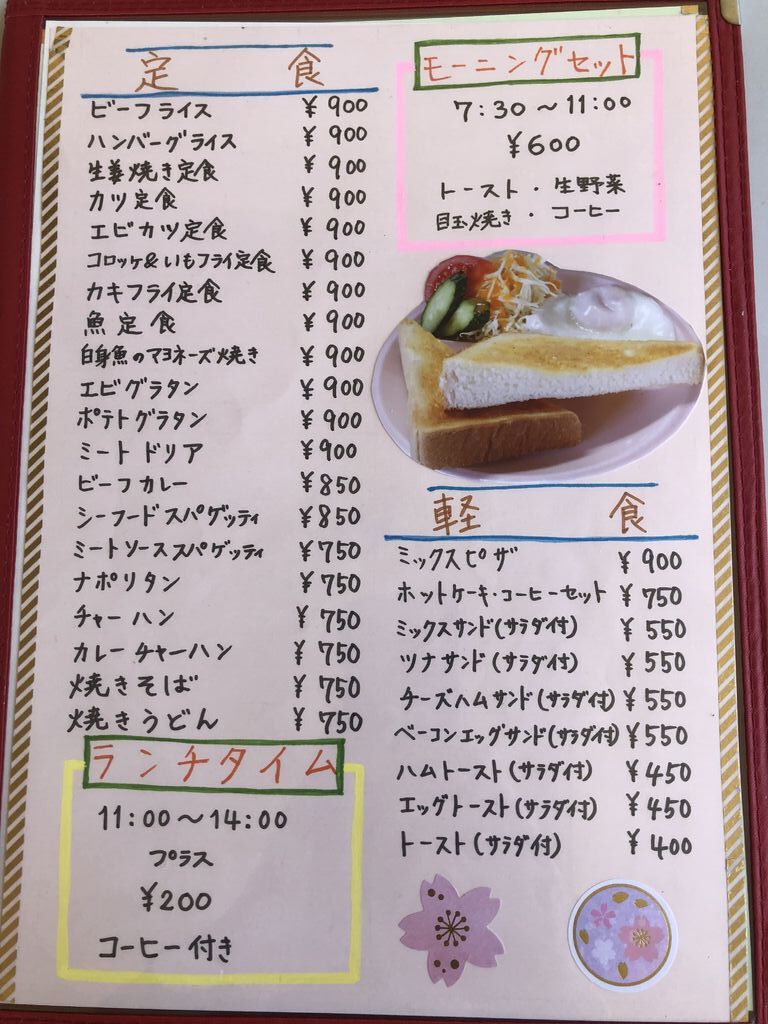 定 食
ビーフライス ¥900
ハンバーグライス ¥900
生姜焼き定食 ¥900
カツ定食 ¥900
エビカツ定食 ¥900
コロッケ&いもフライ定食 ¥900
カキフライ定食 ¥900
魚定食 ¥900
白身魚のマヨネーズ焼き ¥900
エビグラタン ¥900
ポテトグラタン ¥900
ミートドリア ¥900
ビーフカレー ¥850
シーフードスパゲッティ ¥850
ミートソーススパゲッティ ¥750
ナポリタン ¥750
チャーハン ¥750
カレーチャーハン ¥750
焼きそば ¥750
焼きうどん ¥750
ランチタイム
11:00〜14:00
プラス
¥200
コーヒー付き
モーニングセット
7:30〜11:00
¥600
トースト・生野菜
目玉焼き・コーヒー
軽 食
ミックスピザ ¥900
ホットケーキ・コーヒーセット ¥750
ミックスサンド(サラダ付) ¥550
ツナサンド(サラダ付) ¥550
チーズハムサンド(サラダ付) ¥550
ベーコンエッグサンド(サラダ付) ¥550
ハムトースト(サラダ付) ¥450
エッグトースト(サラダ付) ¥450
トースト(サラダ付) ¥400